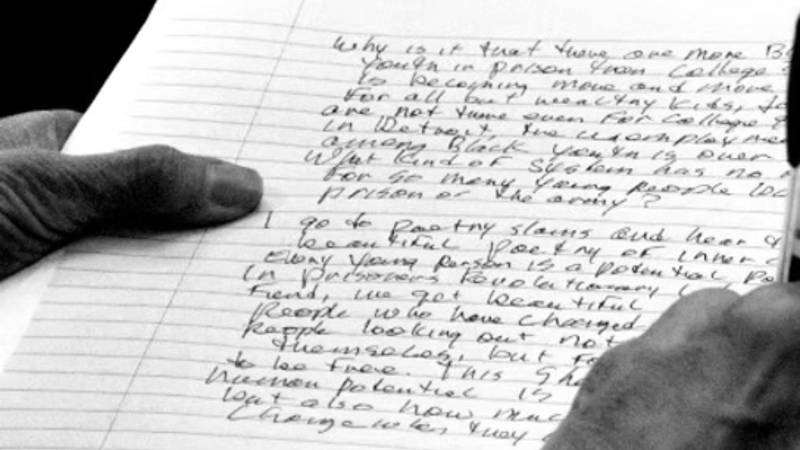 Why is it that there are more B
youth in prison than college
is becoming more and more
for all but wealthy kids,
are not there even for college
in Detroit, the unemployme
among Black youth is over
What kind of system has no
for so many young people
prison or the army?
I go to poetry slams and hear
beautiful poetry of inner
Every young person is a potential
In Prisoners Revolutionary
Fund, we get beautiful
people who have changed
people looking out not
themselves, but
to be free. This sh
human potential is
but also how much
change when they